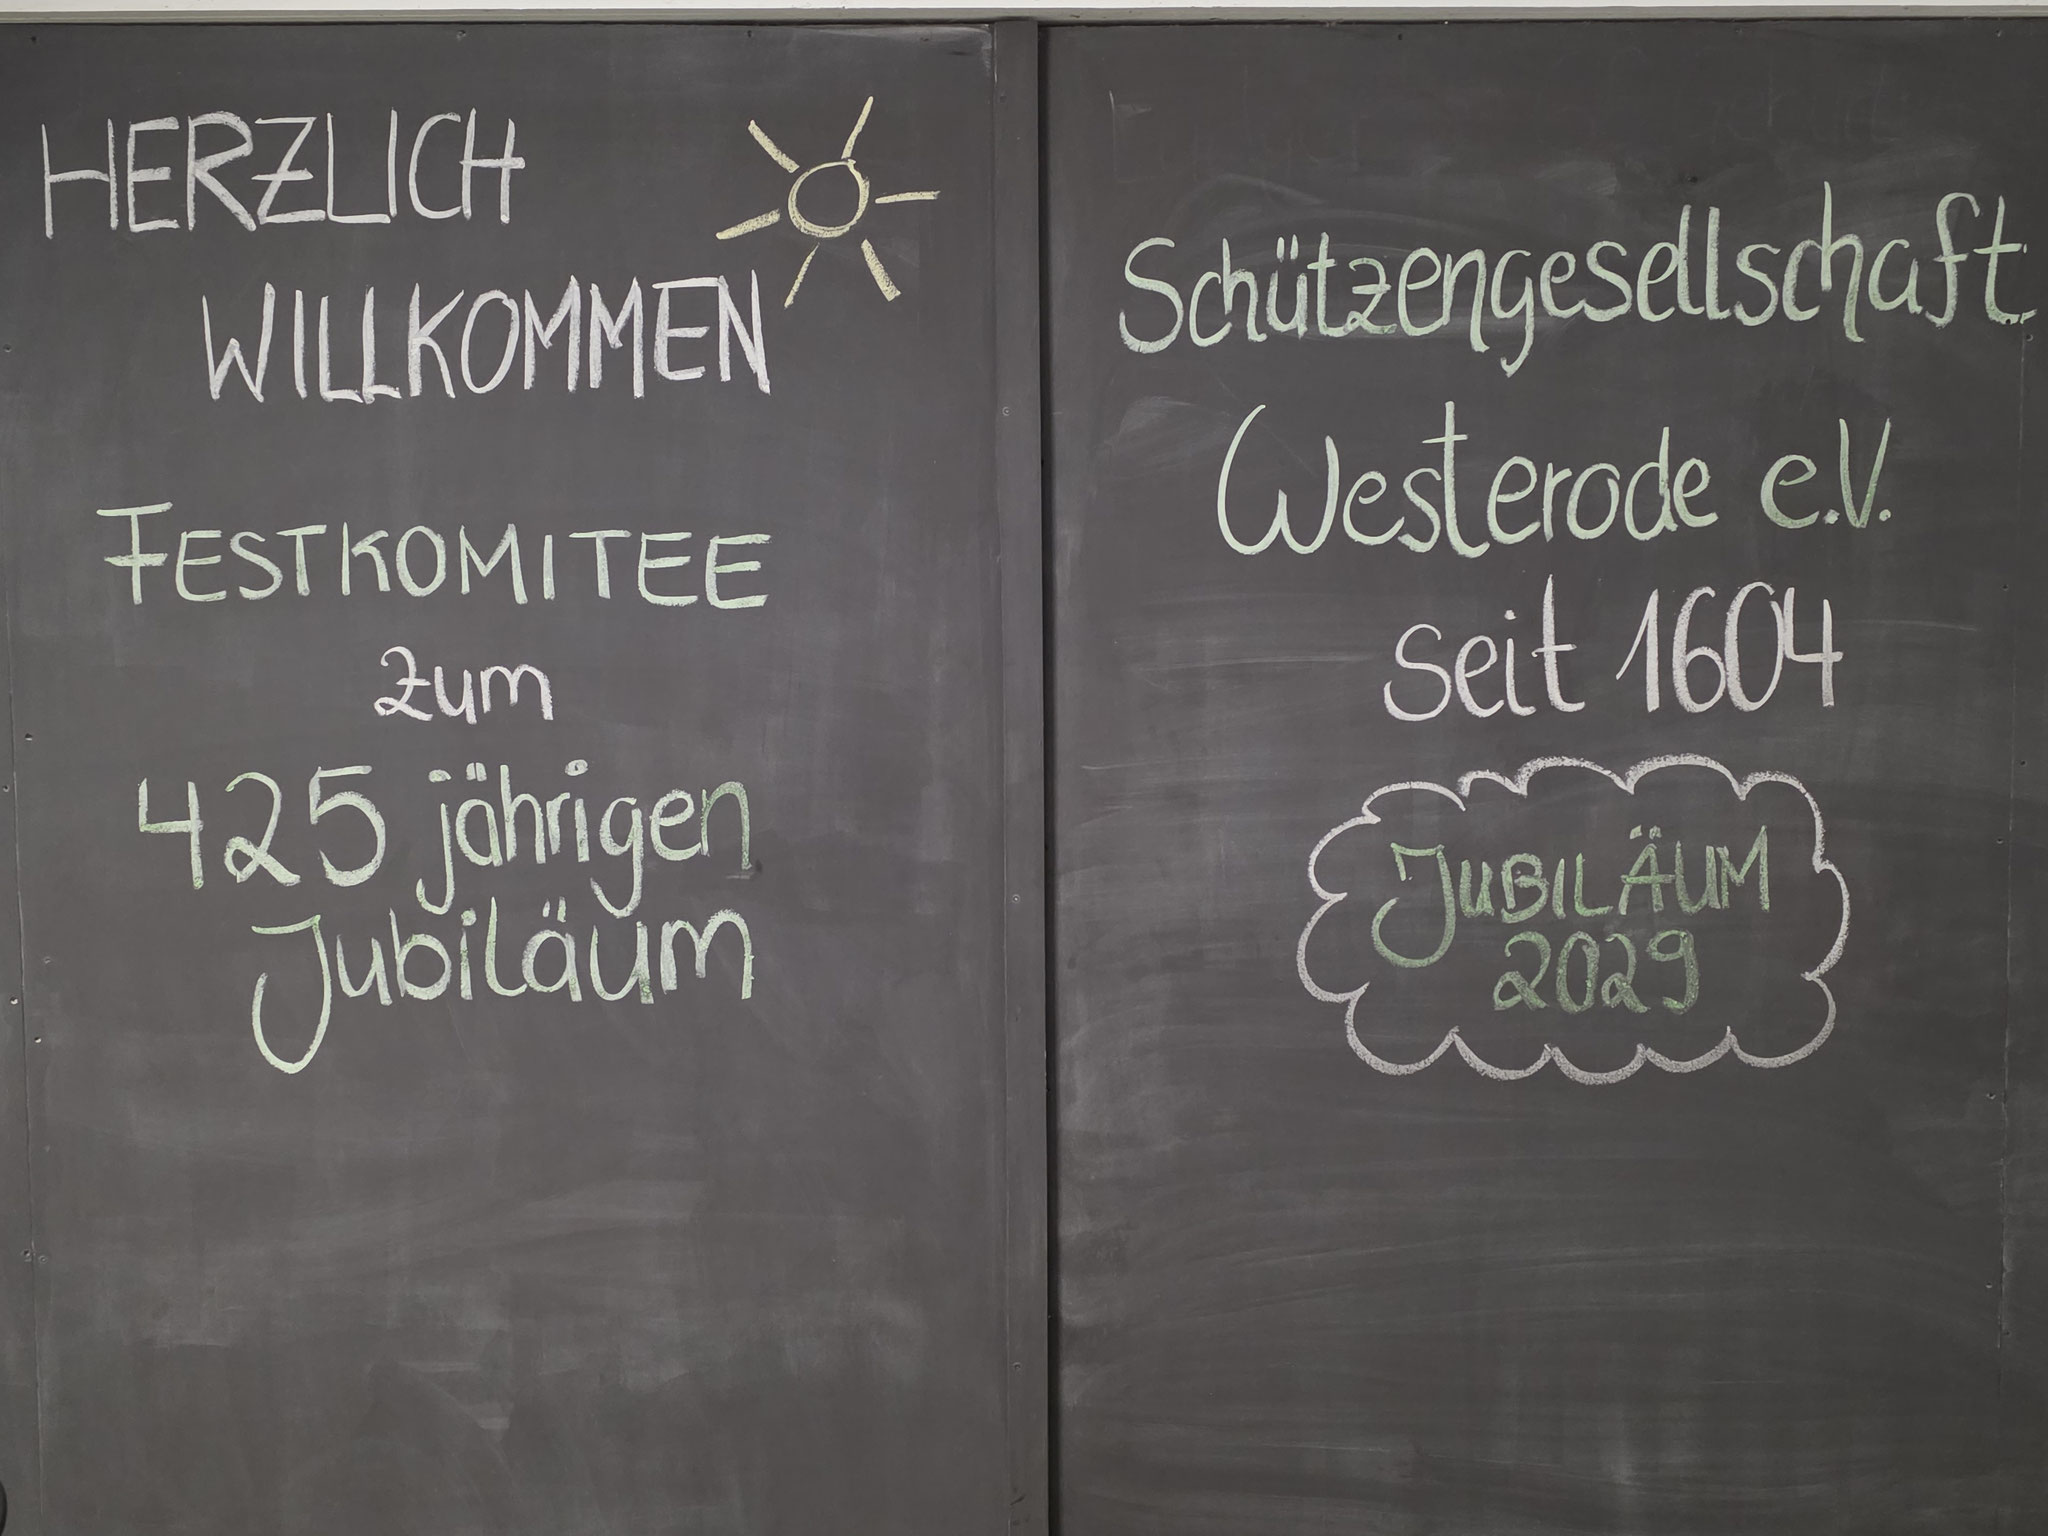 HERZLICH
WILLKOMMEN
FESTKOMITEE
zum
425 jährigen
Jubiläum
Schützengesellschaft
Westerode e.V.
seit 1604
JUBILÄUM
2029